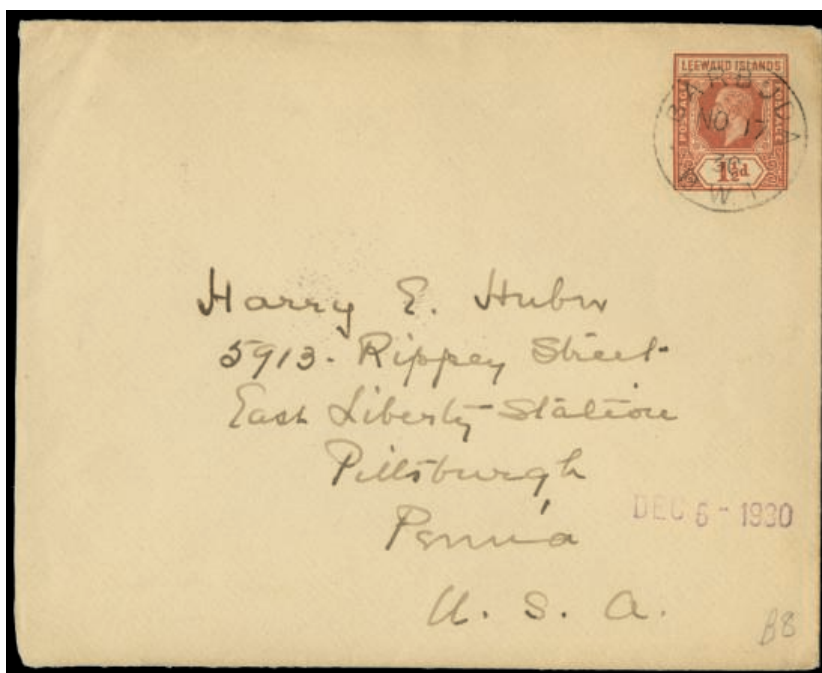 LEEWARD ISLANDS
POSTAGE POSTAGE
BARBUDA
NO 17
30
B.W.I.
1½d
Harry E. Huber
5913. Rippey Street
East Liberty Station
Pittsburgh
Penn'a
U. S. A.
DEC 6 - 1930
B8